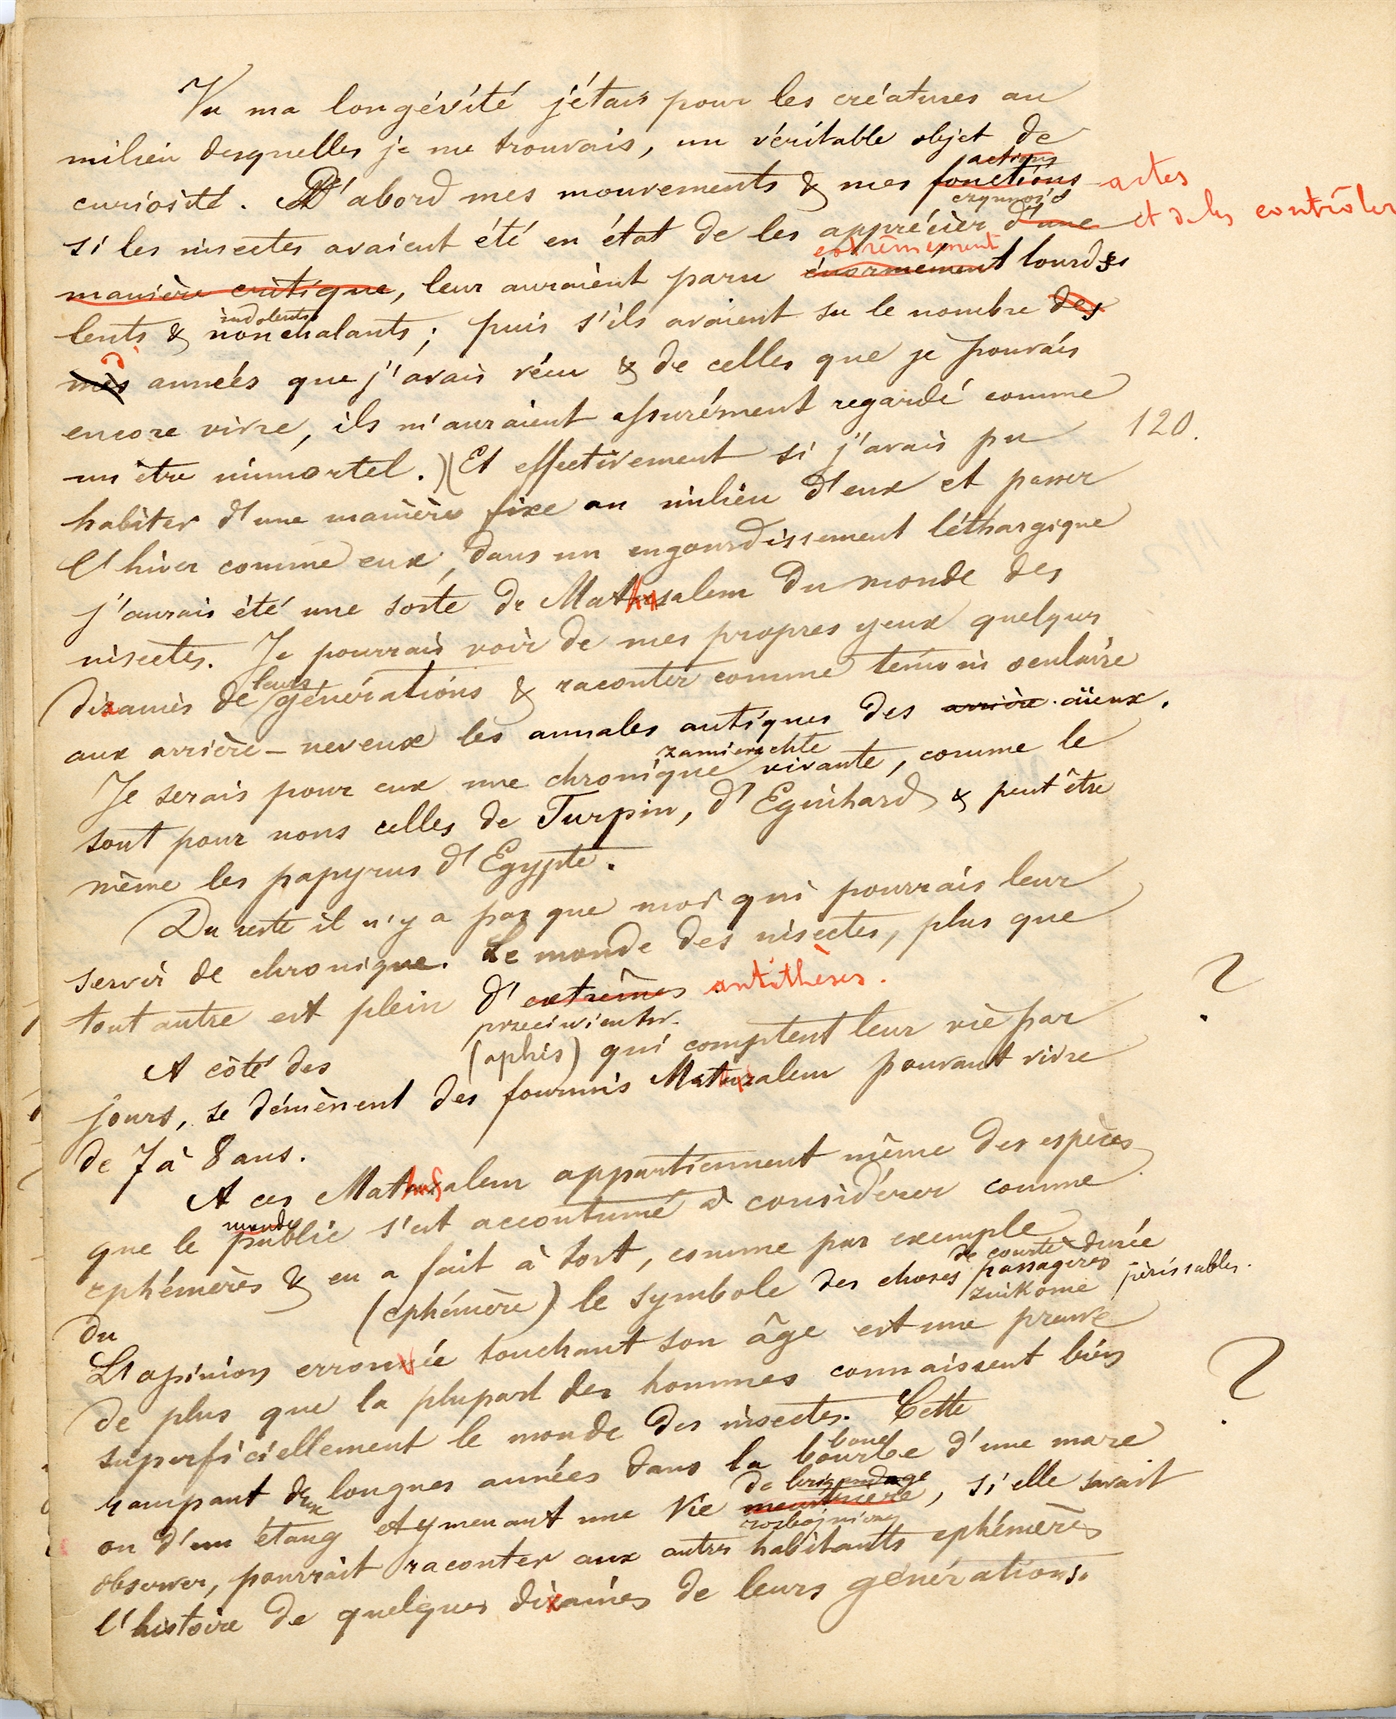 Vu ma longévité j'étais pour les créatures au
milieu desquelles je me trouvais, un véritable objet de
actions
curiosité. D'abord mes mouvements & mes fonctions actes
czynności
si les insectes avaient été en état de les apprécier d'une et de les contrôler
extrêmement
manière critique, leur auraient paru énormément lourds
indolents
lents & nonchalants; puis s'ils avaient su le nombre des
d'
mes années que j'avais vécu & de celles que je pouvais
encore vivre, ils m'auraient assurément regardé comme
120.
un être immortel.) (Et effectivement si j'avais pu
habiter d'une manière fixe au milieu d'eux et passer
l'hiver comme eux, dans un engourdissement léthargique
j'aurais été une sorte de Mathusalem du monde des
insectes. Je pourrais voir de mes propres yeux quelques
leurs
dizaines de générations & raconter comme témoin oculaire
aux arrière-neveux les annales antiques des arrière-aïeux.
zamierzchłe
Je serais pour eux une chronique vivante, comme le
sont pour nous celles de Turpin, d'Eginhard & peut être
même les papyrus d'Egypte.
Du reste il n'y a pas que moi qui pourrais leur
servir de chronique. Le monde des insectes, plus que
tout autre est plein d'extrêmes antithèses. ?
przeciwieństw
A côté des (aphis) qui comptent leur vie par
jours, se démènent des fourmis Mathusalem pouvant vivre
de 7 à 8 ans.
A ces Mathusalem appartiennent même des espèces
monde
que le public s'est accoutumé à considérer comme
éphémères & en a fait à tort, comme par exemple
de courte durée
du (ephémère) le symbole des choses passagères périssables.
znikome
L'opinion erronée touchant son âge est une preuve
de plus que la plupart des hommes connaissent bien ?
superficiellement le monde des insectes. Cette
boue
rampant de longues années dans la bourbe d'une mare
de brigandage
ou d'un étang et y menant une vie meurtrière, si elle savait
rozbójnicze
observer, pourrait raconter aux autres habitants ephémères
l'histoire de quelques dizaines de leurs générations.